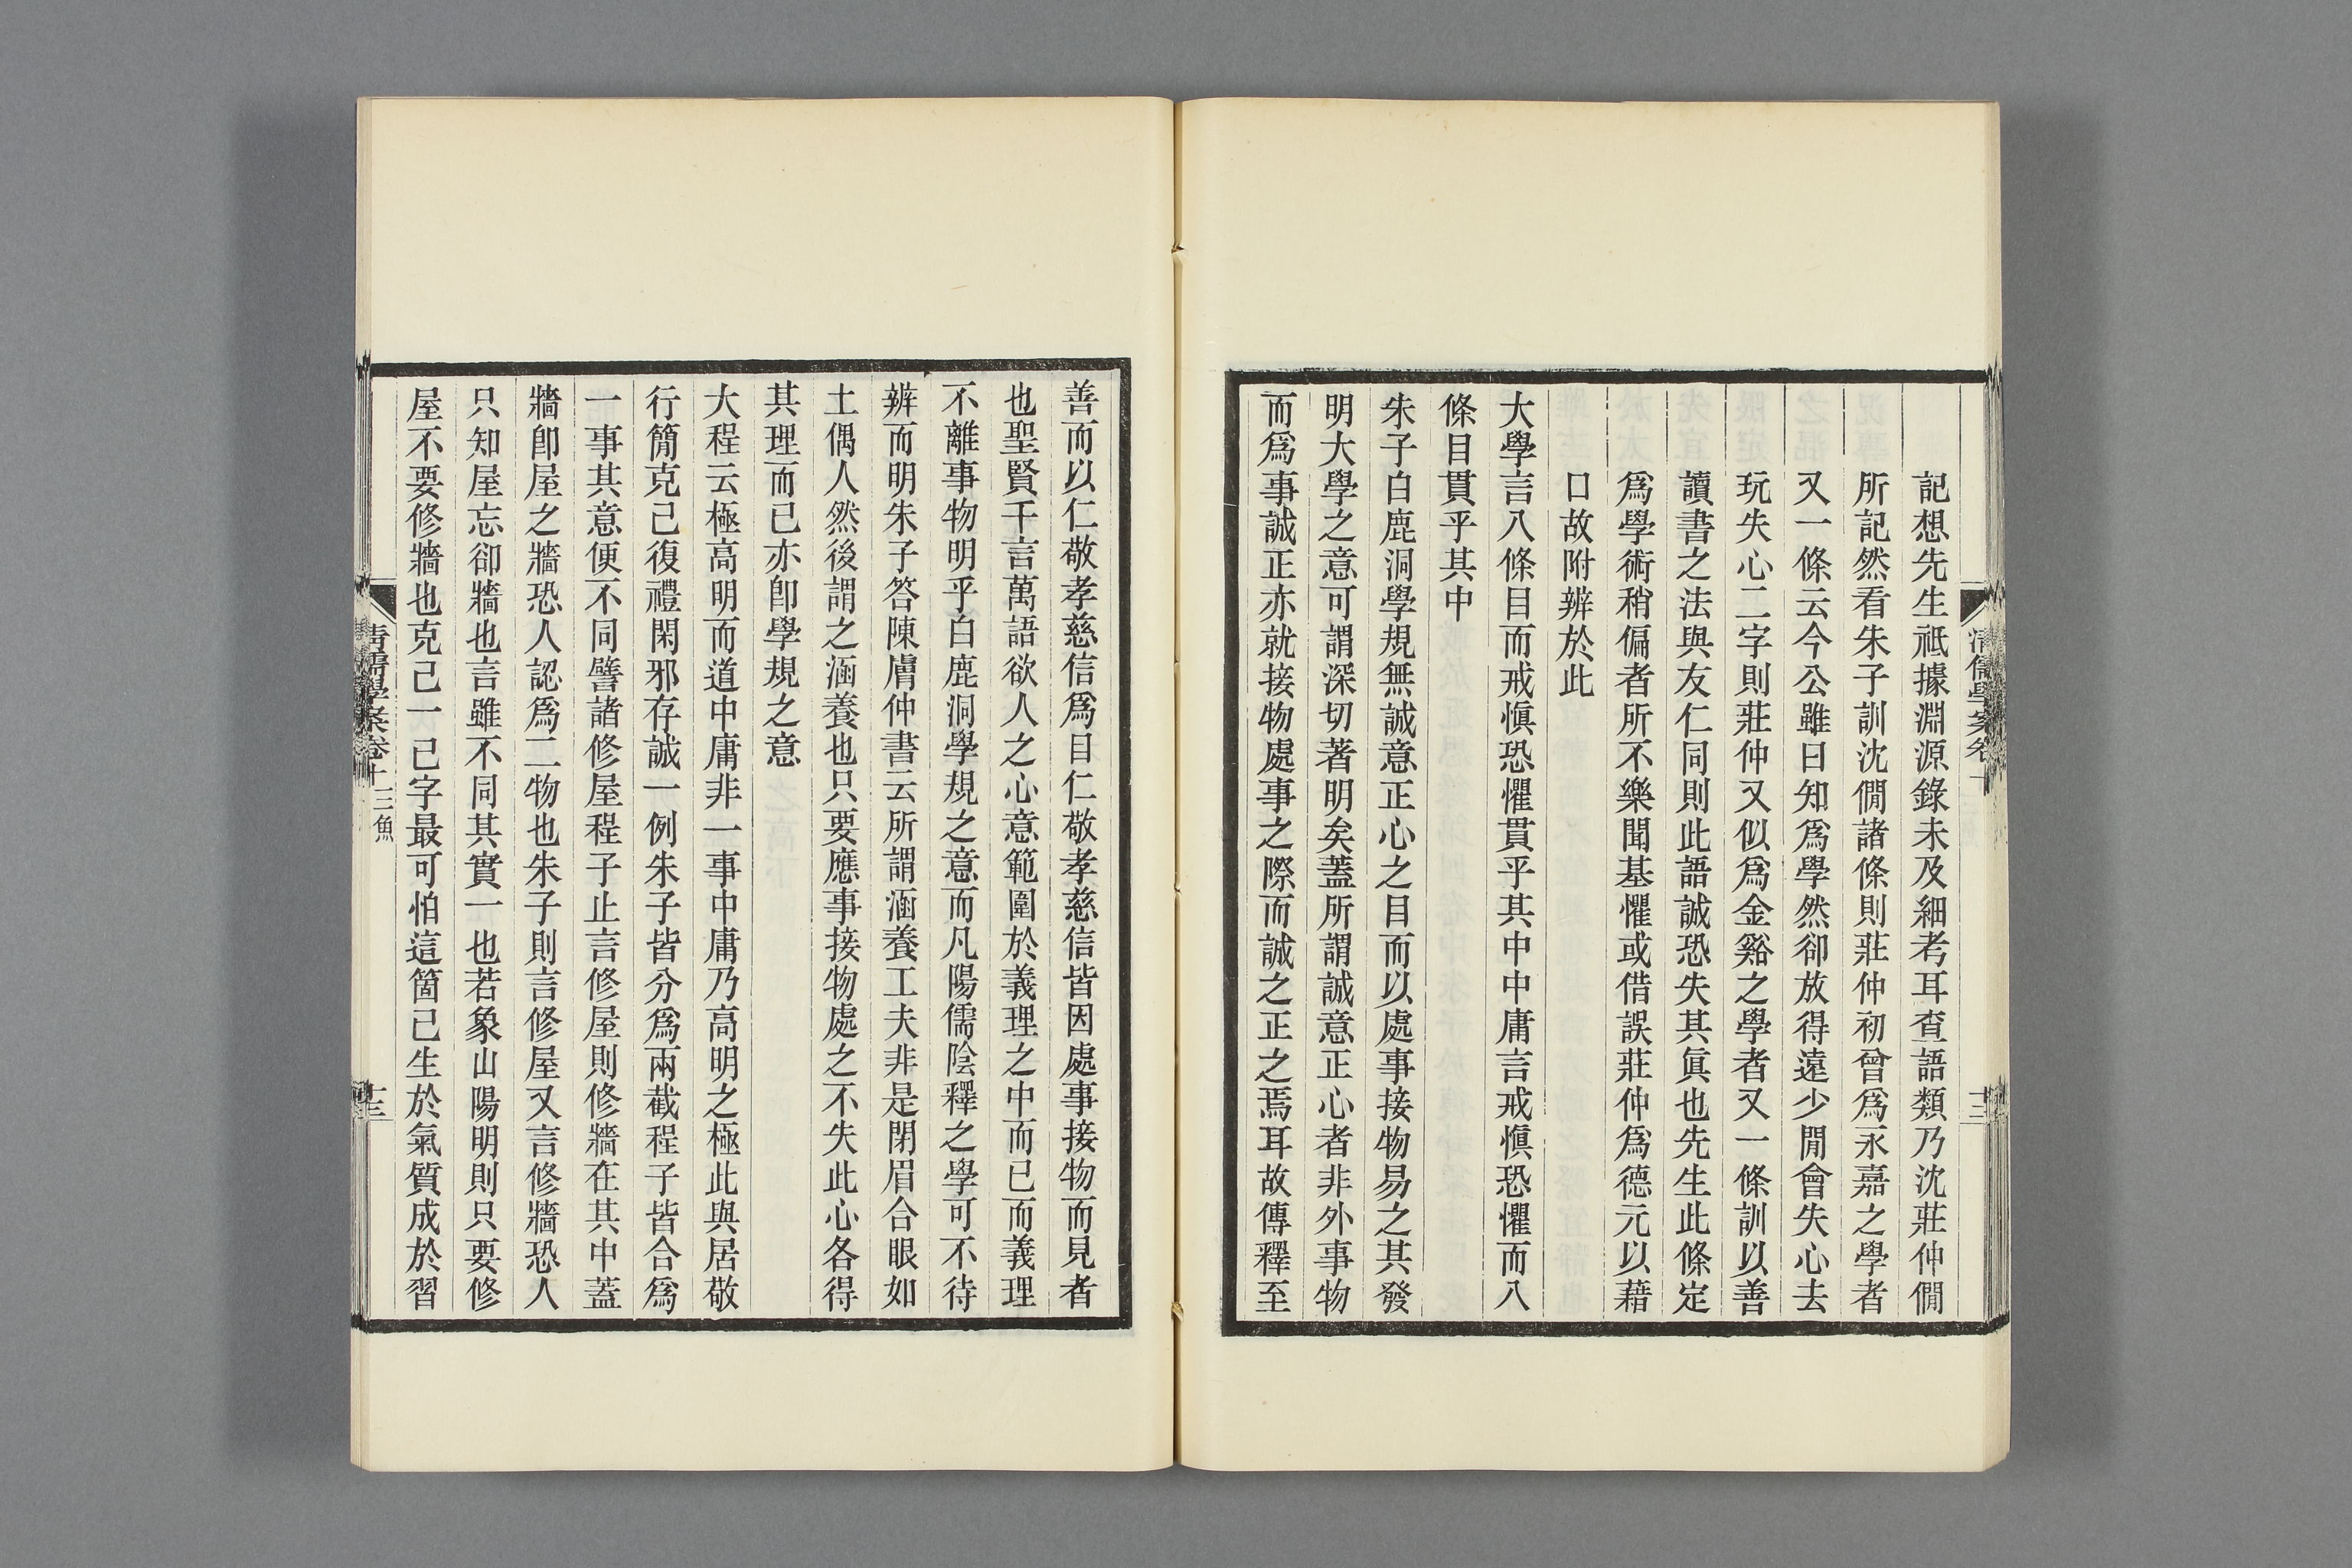 記想先生祗據淵源錄未及細考耳查語類乃沈莊仲僩
所記然看朱子訓沈僩諸條則莊仲初曾爲永嘉之學者
又一條云今公雖曰知爲學然卻放得遠少閒會失心去
玩失心二字則莊仲又似爲金谿之學者又一條訓以善
讀書之法與友仁同則此語誠恐失其眞也先生此條定
爲學術稍偏者所不樂聞基懼或借誤莊仲爲德元以藉
口故附辨於此
大學言八條目而戒愼恐懼貫乎其中中庸言戒愼恐懼而八
條目貫乎其中
朱子白鹿洞學規無誠意正心之目而以處事接物易之其發
明大學之意可謂深切著明矣蓋所謂誠意正心者非外事物
而爲事誠正亦就接物處事之際而誠之正之焉耳故傳釋至
善而以仁敬孝慈信爲目仁敬孝慈信皆因處事接物而見者
也聖賢千言萬語欲人之心意範圍於義理之中而已而義理
不離事物明乎白鹿洞學規之意而凡陽儒陰釋之學可不待
辨而明朱子答陳膚仲書云所謂涵養工夫非是閉眉合眼如
土偶人然後謂之涵養也只要應事接物處之不失此心各得
其理而已亦卽學規之意
大程云極高明而道中庸非一事中庸乃高明之極此與居敬
行簡克己復禮閑邪存誠一例朱子皆分爲兩截程子皆合爲
一事其意便不同譬諸修屋程子止言修屋則修牆在其中蓋
牆卽屋之牆恐人認爲二物也朱子則言修屋又言修牆恐人
只知屋忘卻牆也言雖不同其實一也若象山陽明則只要修
屋不要修牆也克己一己字最可怕這箇已生於氣質成於習
清儒學案卷十 三魚
十三